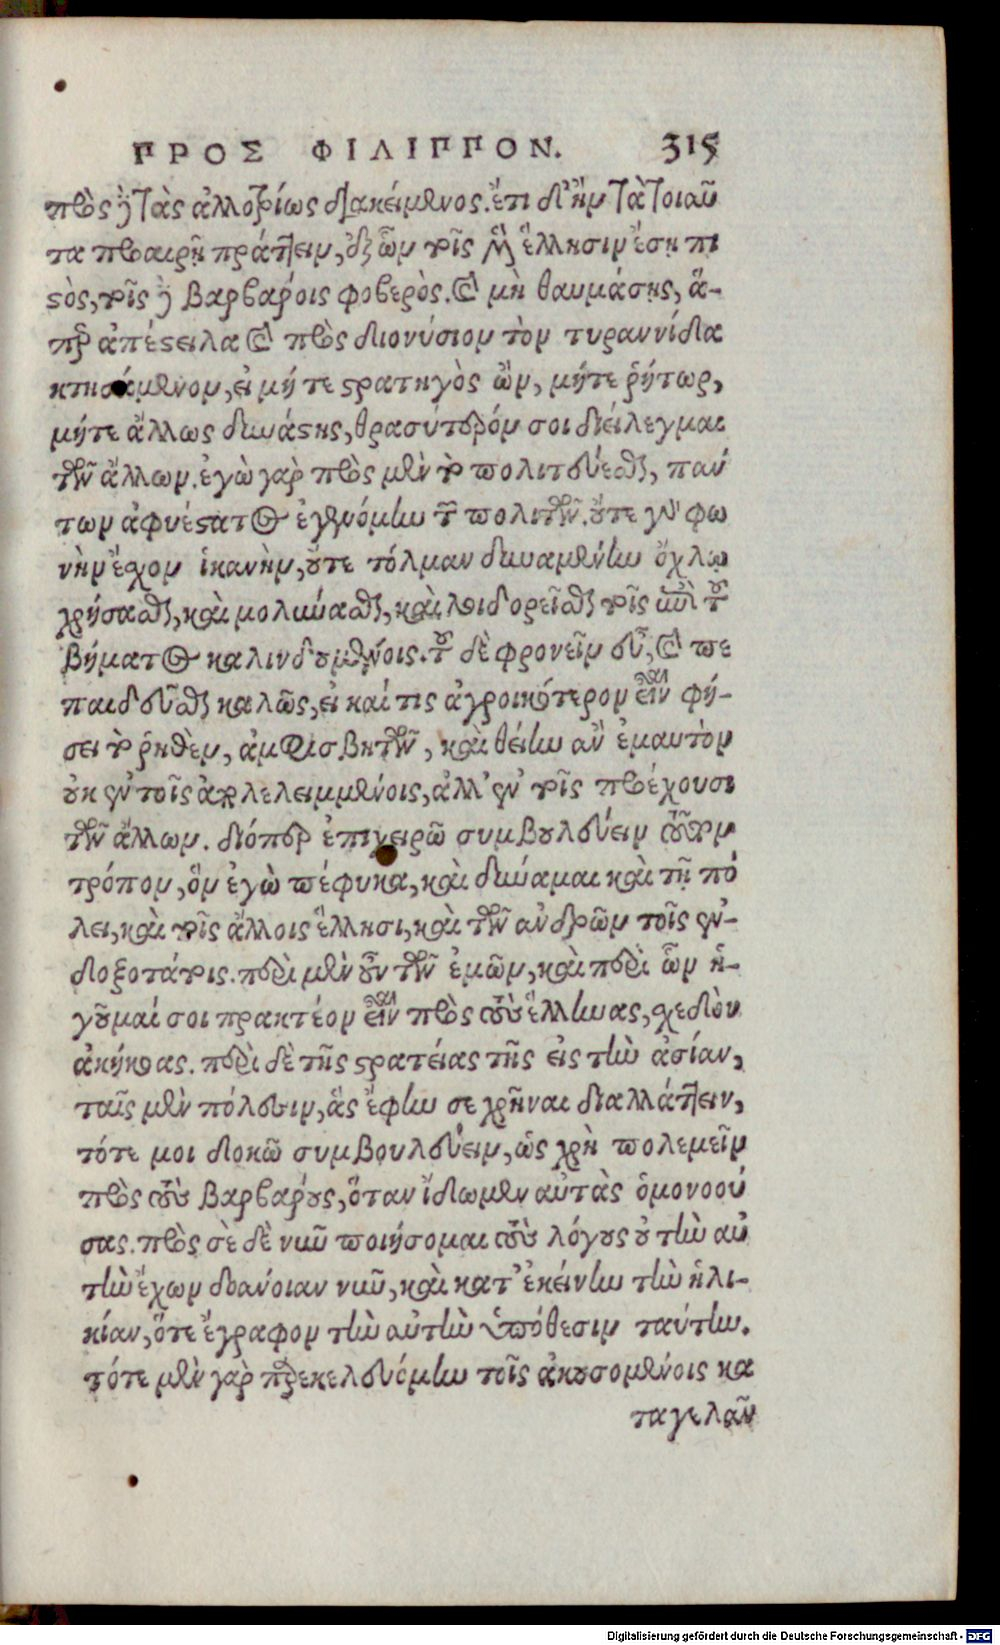 ΠΡΟΣ ΦΙΛΙΠΠΟΝ. 315
πρὸς δὲ τὰς ἀλλοτρίως διακείμενος. ἔτι δ' ἢν τὰ τοιαῦ
τα προαιρῇ πράττειν, ἐξ ὧν τοῖς μὲν ἕλλησιν ἔσῃ πι
στὸς, τοῖς δὲ βαρβάροις φοβερὸς. καὶ μὴ θαυμάσῃς, ἅ-
περ ἀπέστειλα καὶ πρὸς διονύσιον τὸν τυραννίδα
κτησάμενον, εἰ μή τε στρατηγὸς ὢν, μήτε ῥήτωρ,
μήτε ἄλλως δυνάστης, θρασύτερόν σοι διείλεγμαι
τῶν ἄλλων. ἐγὼ γὰρ πρὸς μὲν τὸ πολιτεύεσθαι, πάν
των ἀφυέστατος ἐγενόμην τῶν πολιτῶν. οὔτε γὰρ φω
νὴν ἔχον ἱκανὴν, οὔτε τόλμαν δυναμένην ὄχλῳ
χρῆσασθαι, καὶ μολύνασθαι, καὶ λοιδορεῖσθαι τοῖς ἐπὶ τοῦ
βήματος καλινδουμένοις. τοῦ δὲ φρονεῖν εὖ, καὶ πε
παιδεῦσθαι καλῶς, εἰ καί τις ἀγροικότερον εἶναι φή-
σει τὸ ῥηθὲν, ἀμφισβητῶν, καὶ θείην ἂν ἐμαυτὸν
οὐκ ἐν τοῖς ἀπολελειμμένοις, ἀλλ' ἐν τοῖς προέχουσι
τῶν ἄλλων. διόπερ ἐπιχειρῶ συμβουλεύειν τοῦτον
τρόπον, ὃν ἐγὼ πέφυκα, καὶ δύναμαι καὶ τῇ πό
λει, καὶ τοῖς ἄλλοις ἕλλησι, καὶ τῶν ἀνδρῶν τοῖς ἐν-
δοξοτάτοις. περὶ μὲν οὖν τῶν ἐμῶν, καὶ περὶ ὧν ἡ-
γοῦμαί σοι πρακτέον εἶναι πρὸς τοὺς ἕλληνας, σχεδὸν
ἀκήκοας. περὶ δὲ τῆς στρατείας τῆς εἰς τὴν ἀσίαν,
ταῖς μὲν πόλεσιν, ἃς ἔφην σε χρῆναι διαλλάττειν,
τότε μοι δοκῶ συμβουλεύειν, ὡς χρὴ πολεμεῖν
πρὸς τοὺς βαρβάρους, ὅταν ἴδωμεν αὐτὰς ὁμονοού
σας. πρὸς σὲ δὲ νῦν ποιήσομαι τοὺς λόγους οὐ τὴν αὐ
τὴν ἔχων διάνοιαν νῦν, καὶ κατ' ἐκείνην τὴν ἡλι-
κίαν, ὅτε ἔγραφον τὴν αὐτὴν ὑπόθεσιν ταύτην.
τότε μὲν γὰρ παρεκελευόμην τοῖς ἀκουσομένοις κα
ταγελᾶν
Digitalisierung gefördert durch die Deutsche Forschungsgemeinschaft - DFG